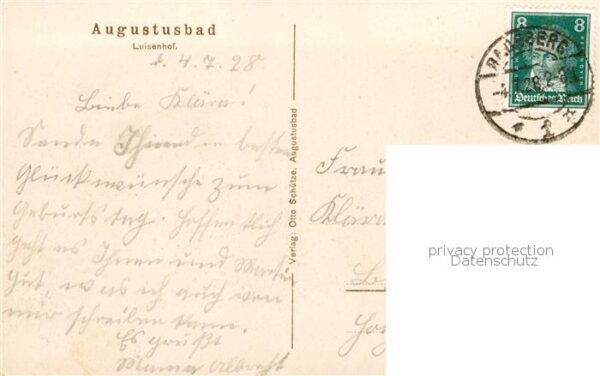 Augustusbad
Luisenhof.
d. 4.7.28
Liebe Klära!
Sende Ihnen die besten
Glückwünsche zum
Geburtstag. Hoffentlich
geht es Ihnen und
Gut, was ich auch von
mir schreiben kann.
Es grüßt
Albrecht
Verlag: Otto Schütze, Augustusbad
8 8
RADEBERG
Deutsches Reich
Frau
Klära
privacy protection
Datenschutz